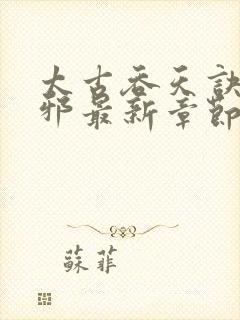 太古吞天訣
邪最新章節
蘇菲